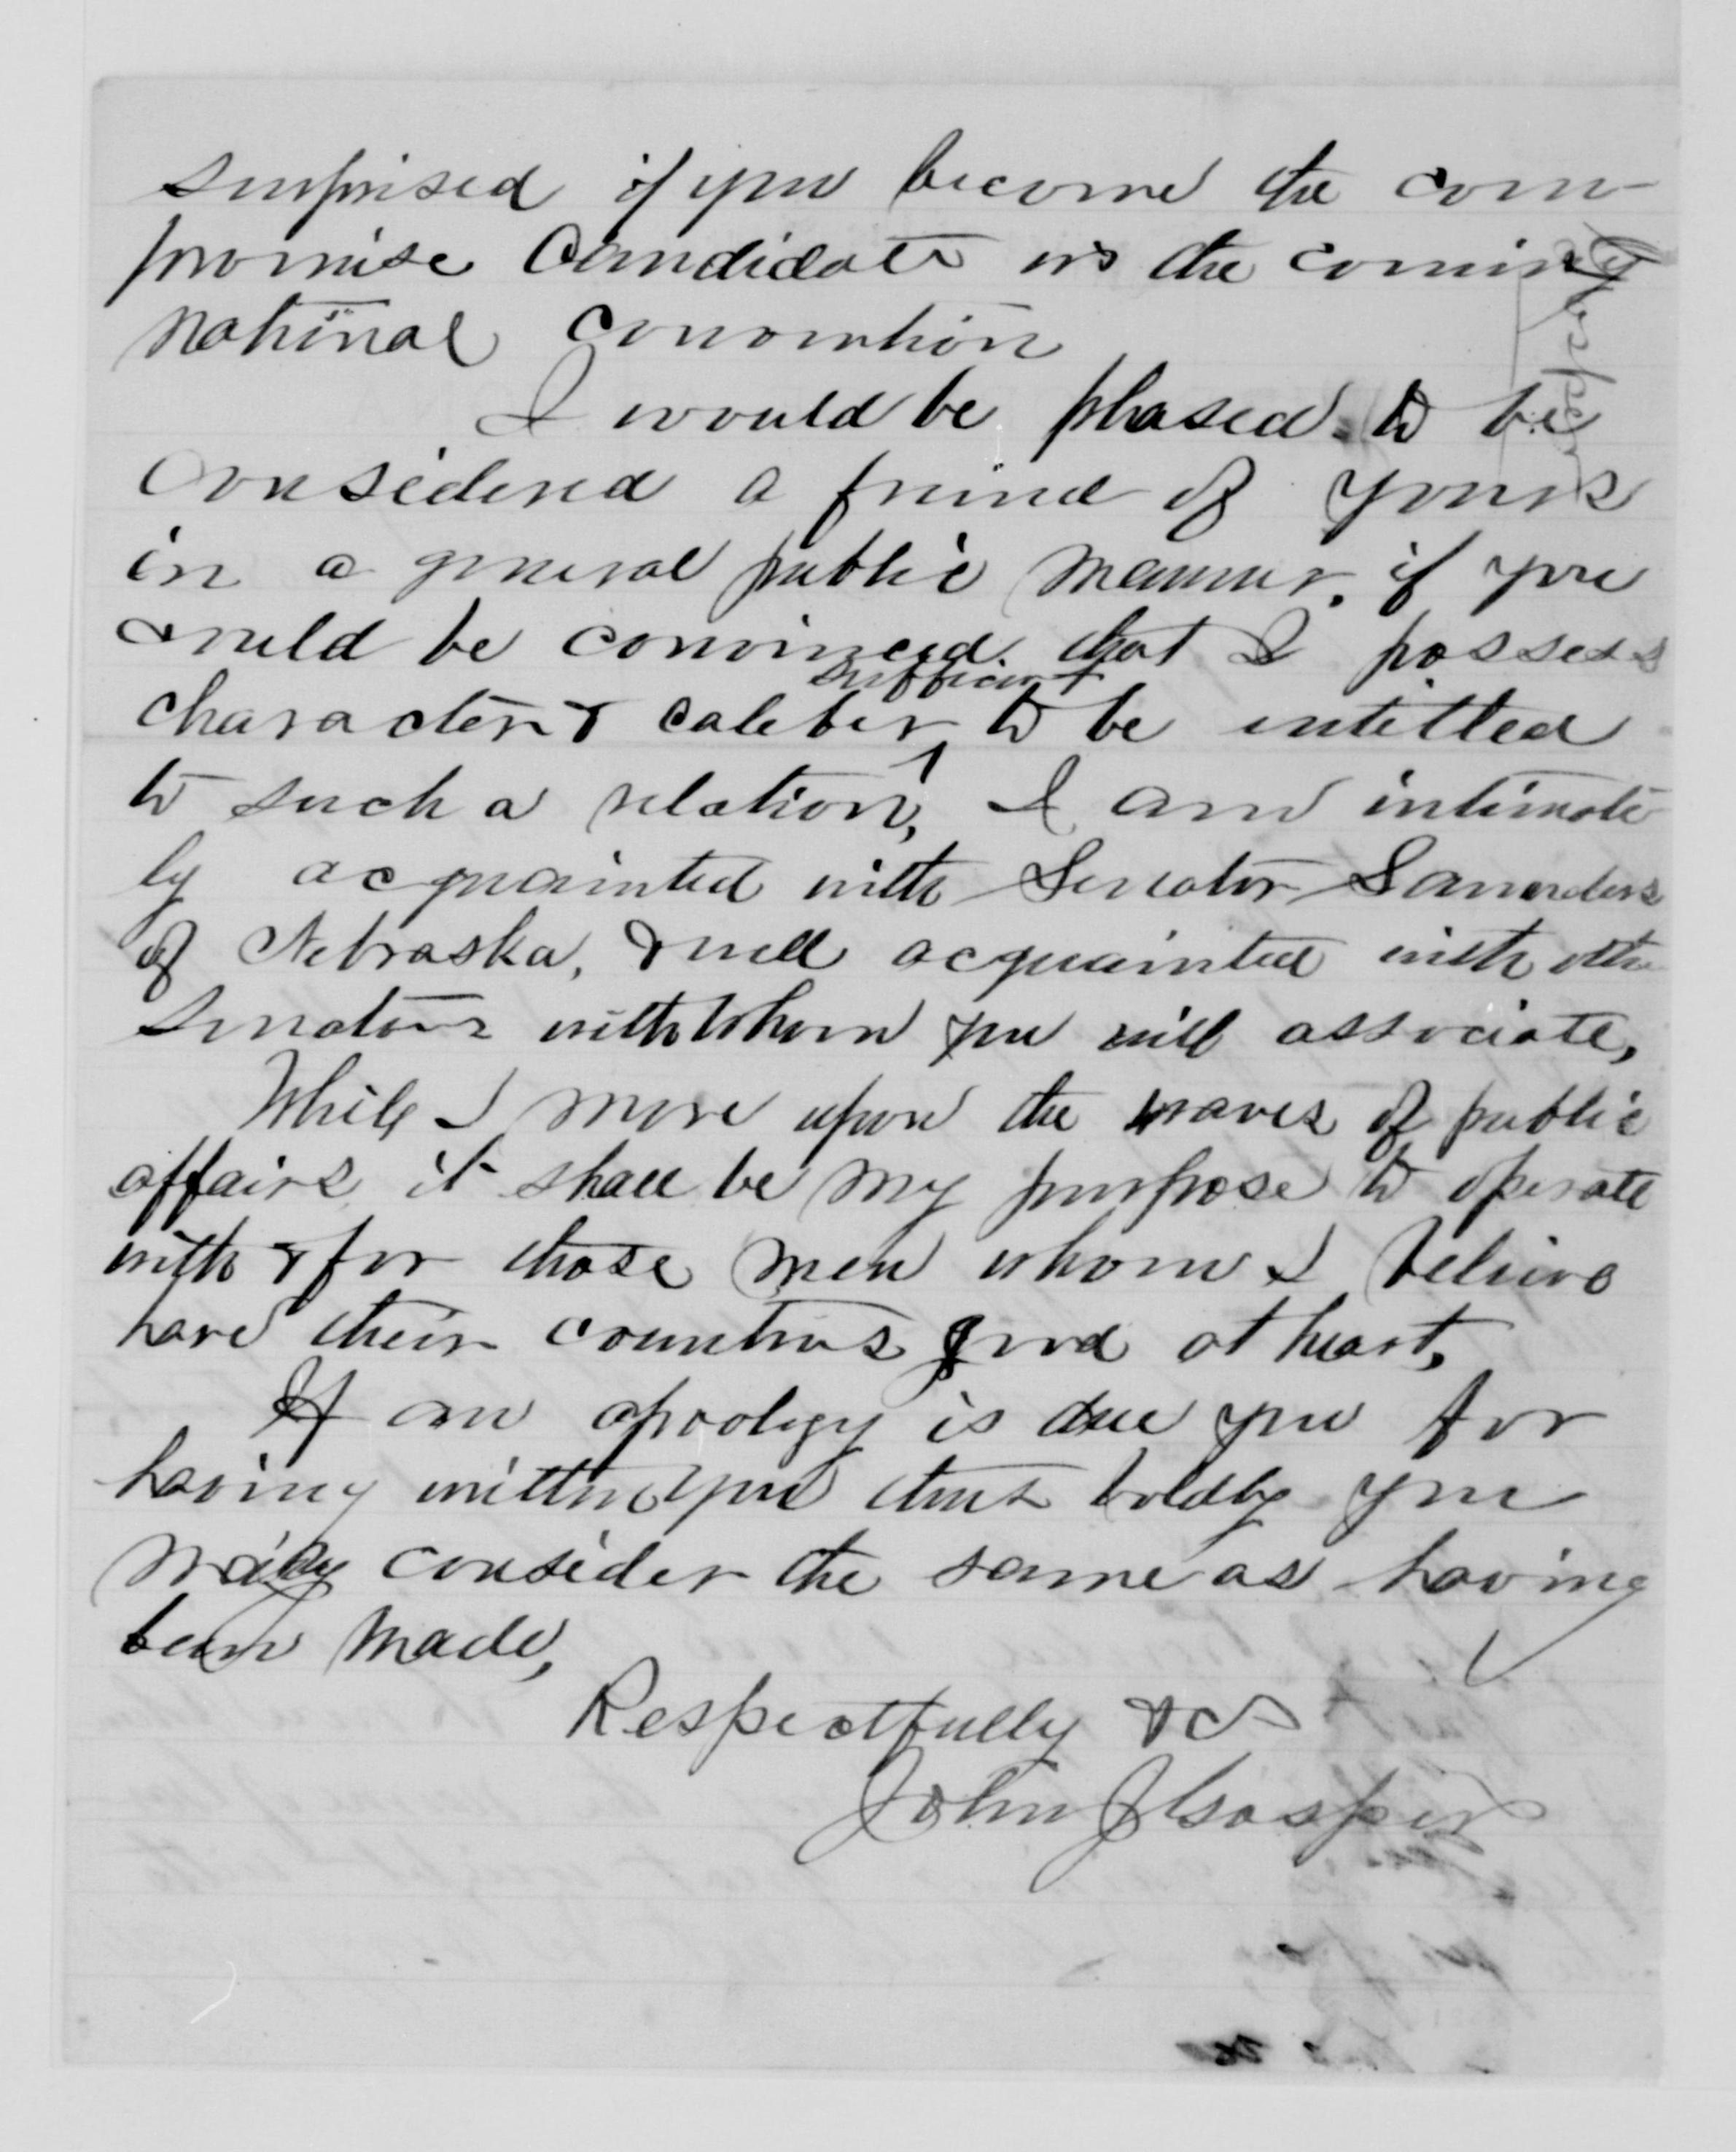 surprised if you become the com-
promise Candidate in the coming
national convention
I would be pleased to be
considered a friend of yours
in a general public manner, if you
could be convinced that I possess
sufficient
character & caliber to be intitled
to such a relation, I am intimate
ly acquainted with Senator Saunders
of Nebraska, & well acquainted with othe
Senators with whom you will associate,
While I move upon the waves of public
affairs it shall be my purpose to operate
with & for those men whom I believe
have their countries good at heart,
If an apology is due you for
having written you thus boldly you
may consider the same as having
been made,
Respectfully &c
John J Gosper